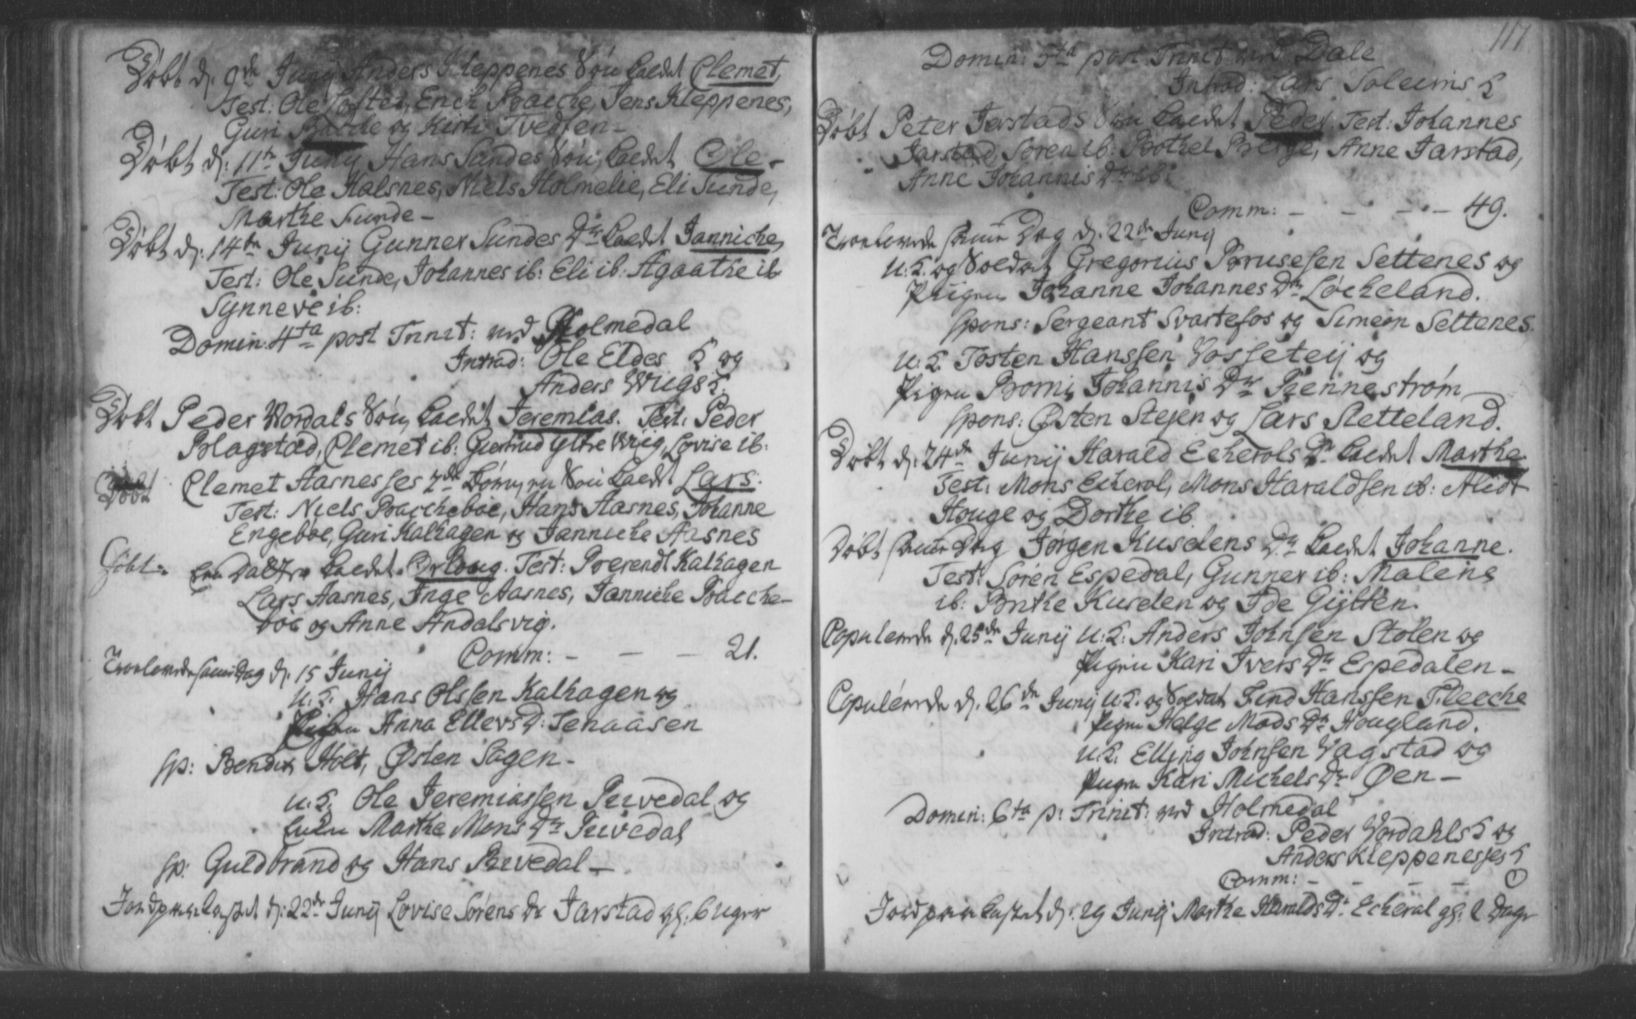 Døbt d: 9de Junij Anders Kleppenes Søn kaldet Clemet,
Test: Ole Erich Baache, Jens Kleppenes,
Guri Baache og Kirti Tvedten
Døbt d: 11te Junij Hans Sandes Søn, kaldet Ole
Test: Ole Halsnes, Niels Holmelie, Eli Sunde,
Marthe Sunde
Døbt d: 14de Junij Gunner Sundes Dr kaldet Janniche,
Test: Ole Sunde, Johannes ib: Eli ib: Agaathe ib
Synneve ib:
Domin: 4ta post Trinit: ved Holmedal
Introd: Ole Eldes K og
Anders Wiigs K.
Døbt Peder Vordals Søn kaldet Jeremias. Test: Peder
Blagstad, Clemet ib: Giertrud Ytre Wiig, Lovise ib:
Døbt Clemet Aasnesses 2de Børn, en Søn kaldet Lars.
Test: Niels Baacheboe, Hans Aasnes, Johanne
Engeboe, Guri Kalhagen og Janniche Aasnes
Døbt en Datter kaldet Test: Berendt Kalhagen
Lars Aasnes, Inge Aasnes, Janniche Baache-
boe og Anne Andalsvig.
Comm: - - - 21.
Troelovede samme Dag d: 15 Junij
U: K. Hans Olssen Kalhagen og
Pigen Anna Ellevs D: Tenaasen
sp: Bendix Holt, Østen Sagen
U: K. Ole Jeremiassen og
Enken Marthe Mons Dr
sp: Guldbrand og Hans
Jordpaakastet d: 22de Junij Lovise Sørens Dr Jarstad gl: 6 uger
117
Domin: 5ta post Trinit: ved Dale
Introd: Lars Soleims K
Døbt Peter Jarstads Søn kaldet Peder. Test: Johannes
Jarstad, Søren ib: Bothel Berge, Anne Jarstad,
Anne Johannis Dr ib:
Comm: - - - - 49.
Troelovede samme Dag d: 22de Junij
U: K. og Soldat Gregorius Settenes og
Pigen Johanne Johannes Dr Locheland.
Spons: Sergeant Svartefos og Simeon Settenes.
U: K. Tosten Hanssen Vosseteij og
Pigen Johannis Dr Rennestrøm
Spons: Østen Steien og Lars Sletteland.
Døbt d: 24de Junij Harald Echerols Dr kaldet Marthe.
Test: Mons Echerol, Mons Haraldsen ib: Alida
Houge og Dorthe ib.
Døbt samme Dag Jørgen Kuselens Dr kaldet Johanne.
Test: Søren Espedal, Gunner ib: Malene
ib: Brithe Kuselen og Ide Gijtten.
Copulerede d: 25de Junij U: K: Anders Johnsen Stølen og
Pigen Kari Ivers Dr Espedalen
Copulerede d: 26de Junij U: K. og Soldat Find Hanssen Fleeche
Pigen Helge Mads Dr Hougland.
U: K. Elling Johnsen Vagstad og
Pigen Kari Michels Dr Øen
Domin: 6ta p: Trinit: ved Holmedal
Introd: Peder Vordahls K og
Anders Kleppenesses K
Comm: - - - - 0
Jordpaakastet d: 29 Junij Marthe Haralds Dr Echerol gl: 2 Dage